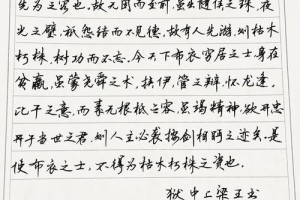 先为之容也。故无因而至前，虽出随侯之珠，夜
光之璧，祗怨结而不见德。故有人先游，则枯木
朽株，树功而不忘。今天下布衣穷居之士，身在
贫羸，虽蒙尧舜之术，挟伊管之辩，怀龙逢，
比干之意，而素无根柢之容，虽竭精神，欲开忠
于当世之君，则人主必袭按剑相眄之迹矣，是
使布衣之士，不得为枯木朽株之资也。
狱中上梁王书